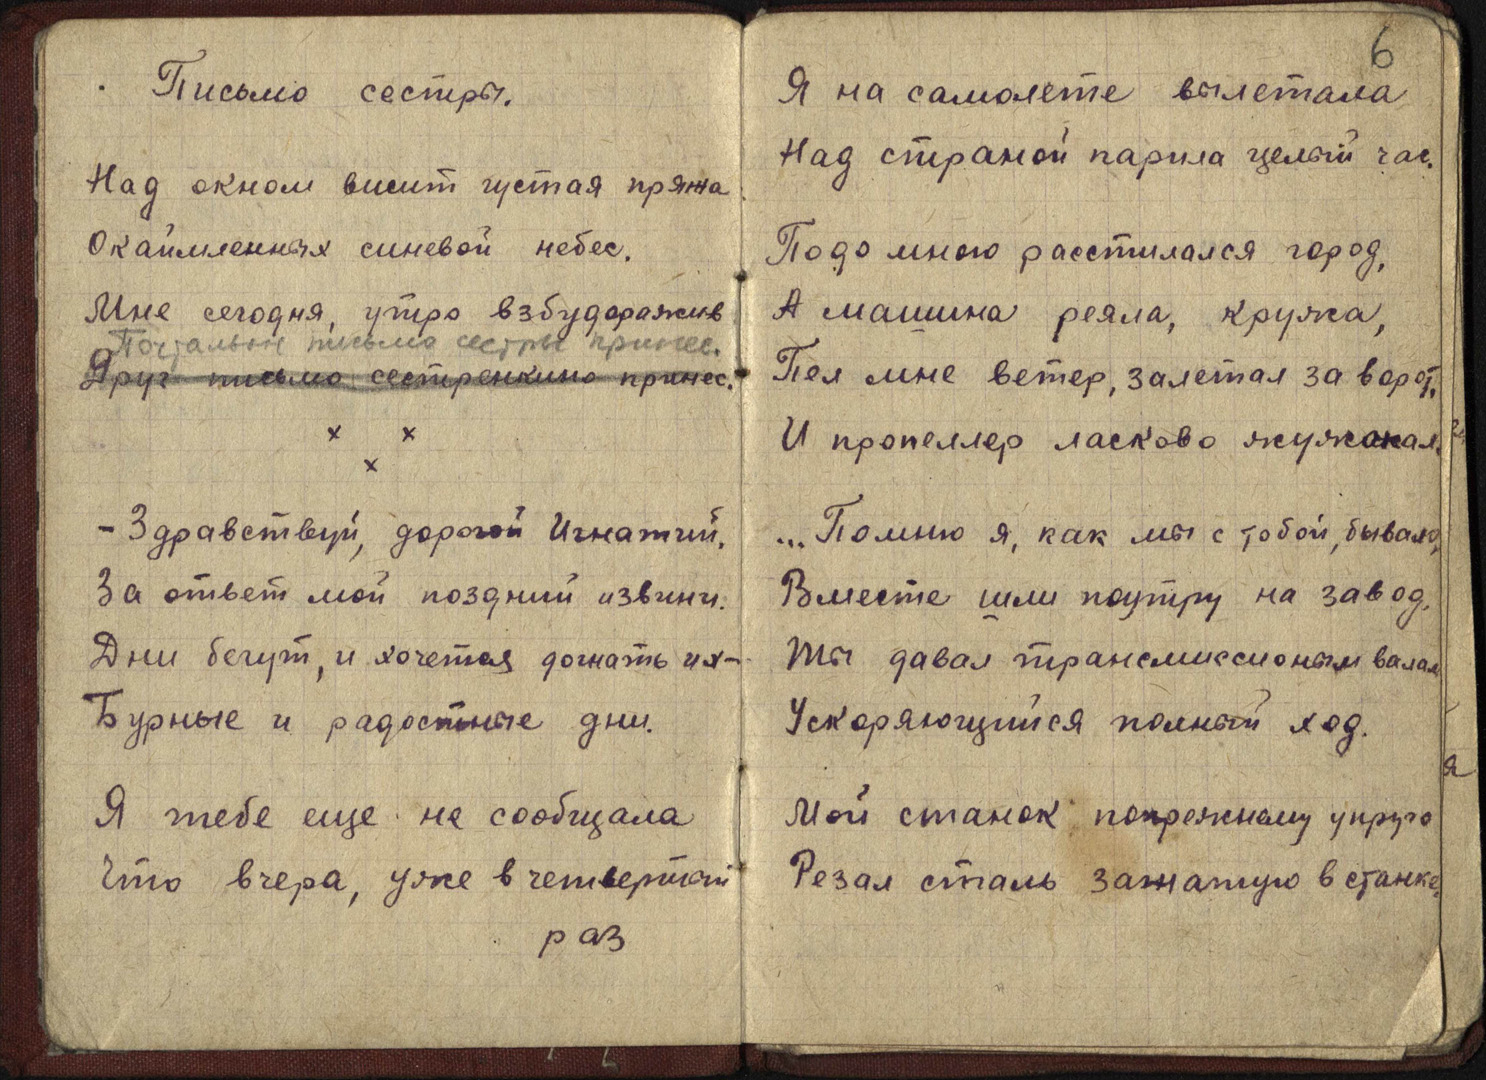 Письмо сестры.
Над окном висит густая пряжа
Окаймленных синевой небес.
Мне сегодня, утро взбударажив
Почтальон письмо сестры принес.
Друг письмо сестренкино принес.
х х
х
- Здравствуй, дорогой Игнатий.
За ответ мой поздний извини.
Дни бегут, и хочется догнать их –
Бурные и радостные дни.
Я тебе еще не сообщала
Что вчера, уже в четвертый
раз
6
Я на самолете вылетала
Над страной парила целый час.
Подо мною расстилался город,
А машина реяла, кружа,
Пел мне ветер, залетал за ворот,
И пропеллер ласково
...Помню я, как мы с тобой, бывало,
Вместе шли поутру на завод,
Ты давал трансмиссионым валам
Ускоряющийся полный ход.
Мой станок попрежнему упруго
Резал сталь зажатую в станке,